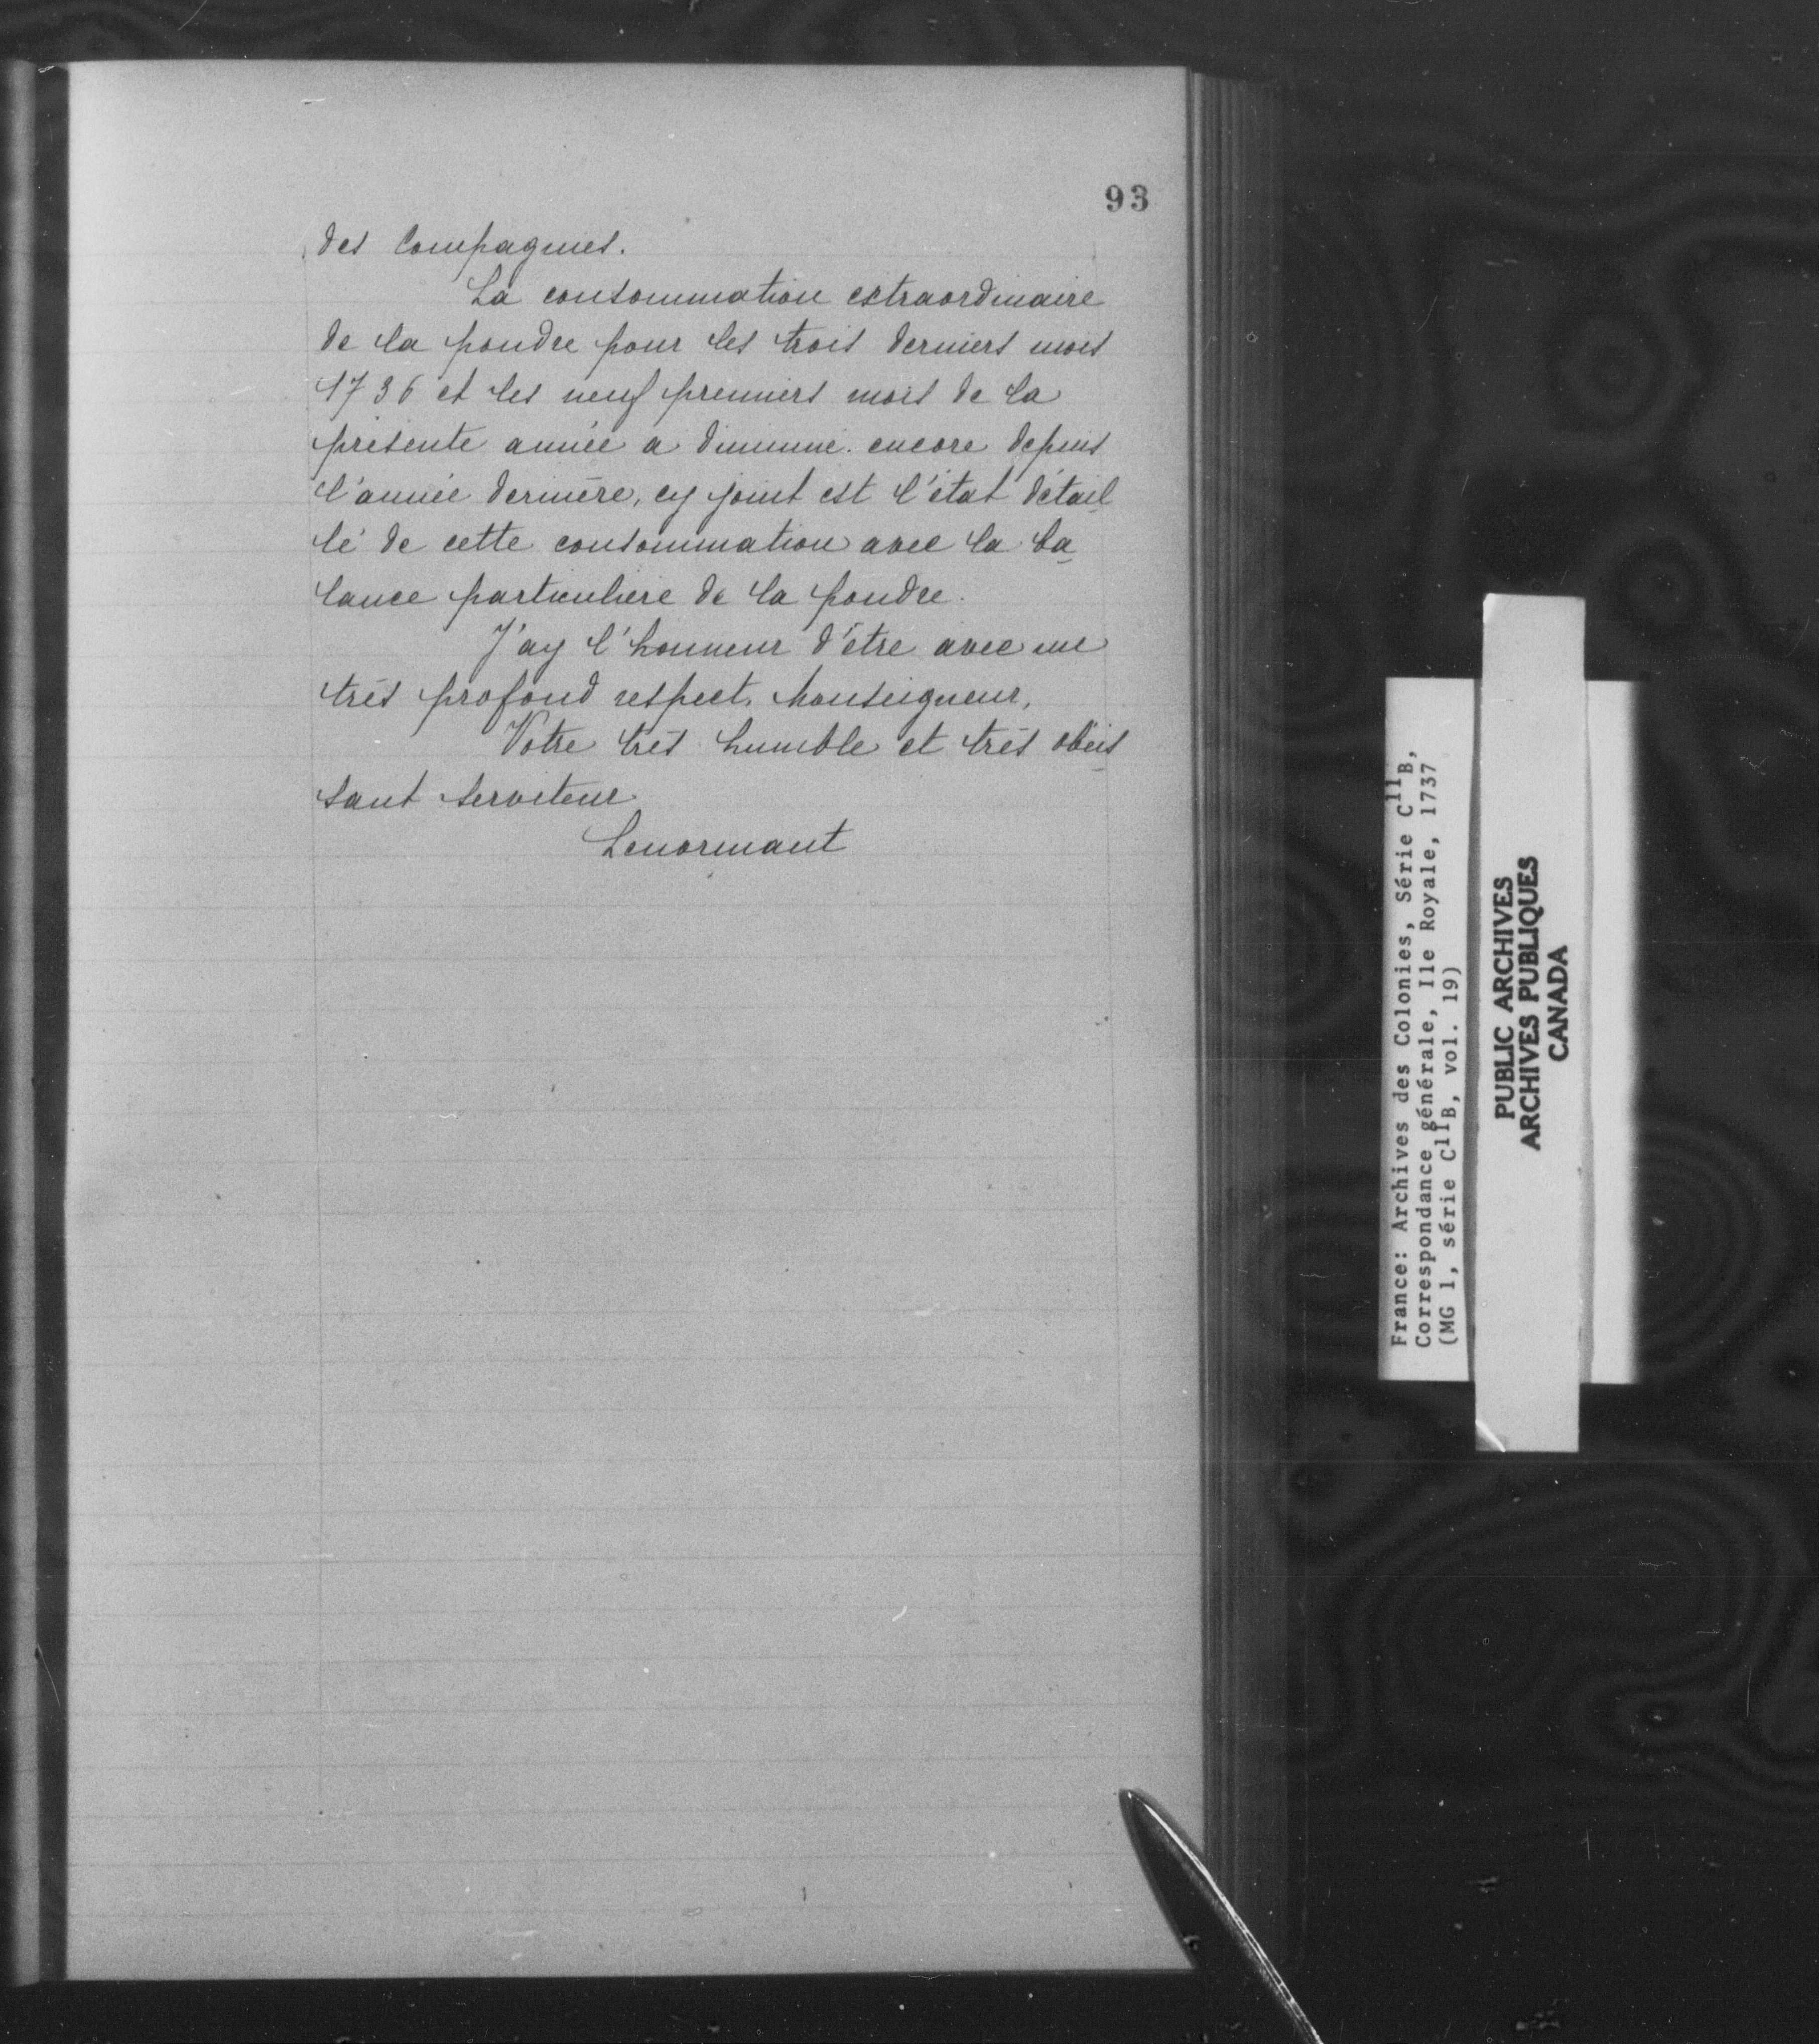 93
des Compagnies.
La consommation extraordinaire
de la poudre pour les trois derniers mois
1736 et les neuf premiers mois de la
présente année a diminué encore depuis
l'année dernière, cy joint est l'état détail
lé de cette consommation avec la ba
lance particulière de la poudre.
J'ay l'honneur d'être avec un
très profond respect, Monseigneur,
Votre très humble et très obéis
sant serviteur
Lenormant
France: Archives des Colonies, Série C11B,
Correspondance générale, Ile Royale, 1737
(MG 1, série C11B, vol. 19)
PUBLIC ARCHIVES
ARCHIVES PUBLIQUES
CANADA